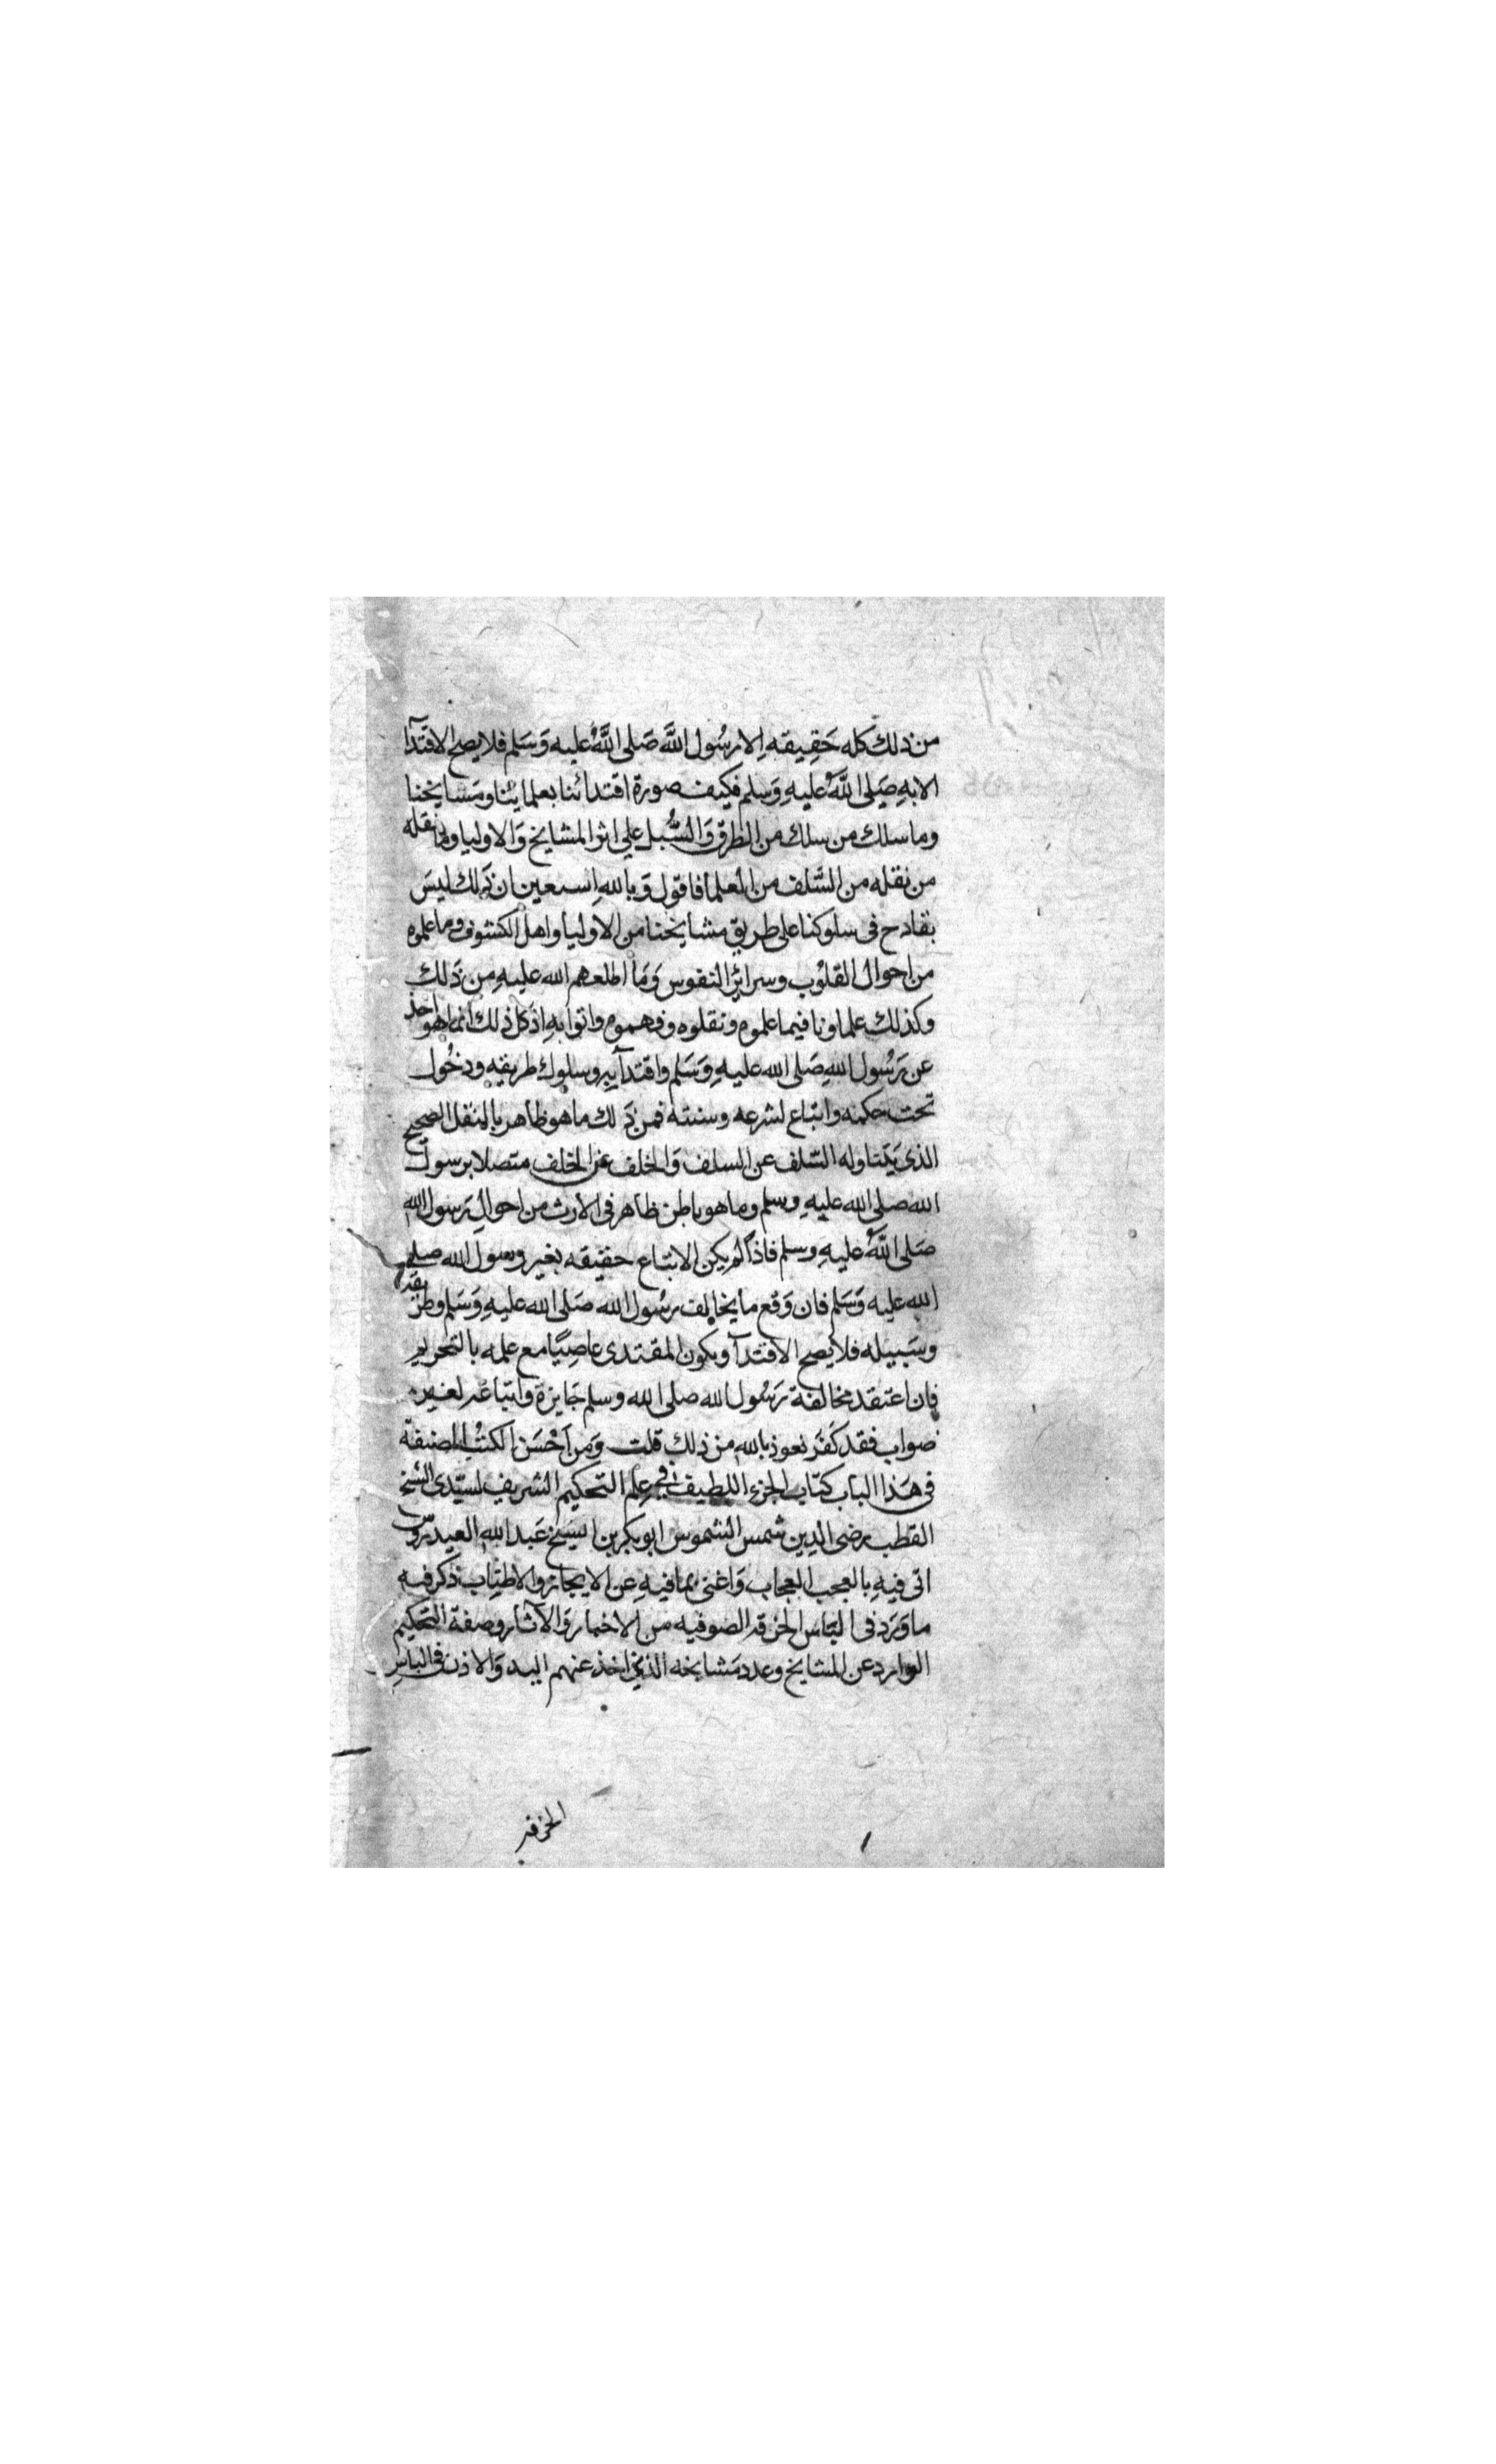 من ذلك كله حَقِيقه اِلا رسُول اللَّه صَلى اللَّهُ عليه وَسَلم فلا يصح الاقتدآ
الابهِ صَلى اللَّهُ عليهِ وَسلم فكيف صورة اقتدائنا بعلمائنا ومَشايخنا
وما سلك من سلك من الطرق وَالسُّبل علي اثر المشايخ وَالاوليا وما نقله
من نقله من السَّلف من العلما فاقول وَبالله استعين ان ذَلك ليسَ
بقادح فى سلوكنا على طريق مشايخنا من الاوليا واهل الكشوف وما علموه
من احوال القلوُب وسرائر النفوس وَمَا اطلعهم الله عليهِ من ذَلك
وكذلك علماونا فيما علموه ونقلوه وفهموه واتوا بهِ اذ كل ذلك انما هو اخذ
عن رَسُول اللهِ صَلى الله عليهِ وَسَلم واقتدآ بهِ وسلوك طريقه ودخُول
تحت حكمه واتباع لشرعه وسنته فمن ذَلك ما هو ظاهر بالنقل الصحيح
الذى يَتناوله السّلف عن السلف وَالخلف عن الخلف متصلا برسول
الله صلى الله عليهِ وسلم وما هو باطن ظاهر فى الارث من احوالِ رَسول الله
صَلى اللَّهُ عليهِ وسلم فاذا لم يكن الاتباع حقيقه بغير رسول الله صلى
الله عليه وَسَلم فان وَقع ما يخالف رسُول الله صَلى الله عليهِ وَسَلم وطريقه
وسَبيله فلا يصح الاقتدآ ويكون المقتدى عاصِيًا مع علمه بالتحريم
فان اعتقد مخالفة رَسُول الله صلى الله وسلم جَايزة واتباعه لغيره
صواب فقد كَفَر نعوذ بالله من ذلك قلت وَمن اَحْسَن الكتُب المصنفة
فى هَذا الباب كتاب الجزء اللطيف فى علم التحكيم الشريف لسيّدى الشيخ
القطب رضى الدين شمس الشموس ابو بكر بن الشيخ عَبد الله العيدرّوس
اتى فيهِ بالعجب العجاب وَاغنى بما فيهِ عن الايجاز والاطنِاب ذكر فيه
ما وَرَد فى البَاس الخرقه الصوفيه من الاخبار وَالآثار وصفة التحكيم
الوارد عن المشايخ وعدد مَشايخه الذين اخذ عنهم اليد وَالاذن فى الباسِ
الخرقه